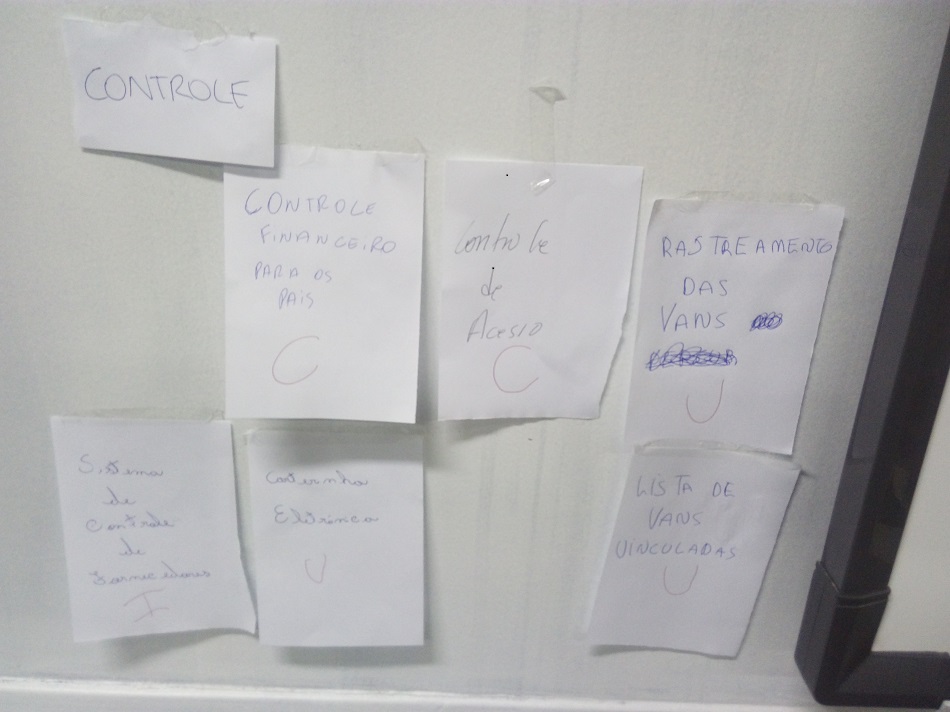 CONTROLE
CONTROLE
FINANCEIRO
PARA OS
PAIS
C
Controle
de
Acesso
C
RASTREAMENTO
DAS
VANS
U
Sistema
de
Controle
de
Fornecedores
I
Carteirinha
U
LISTA DE
VANS
VINCULADAS
U